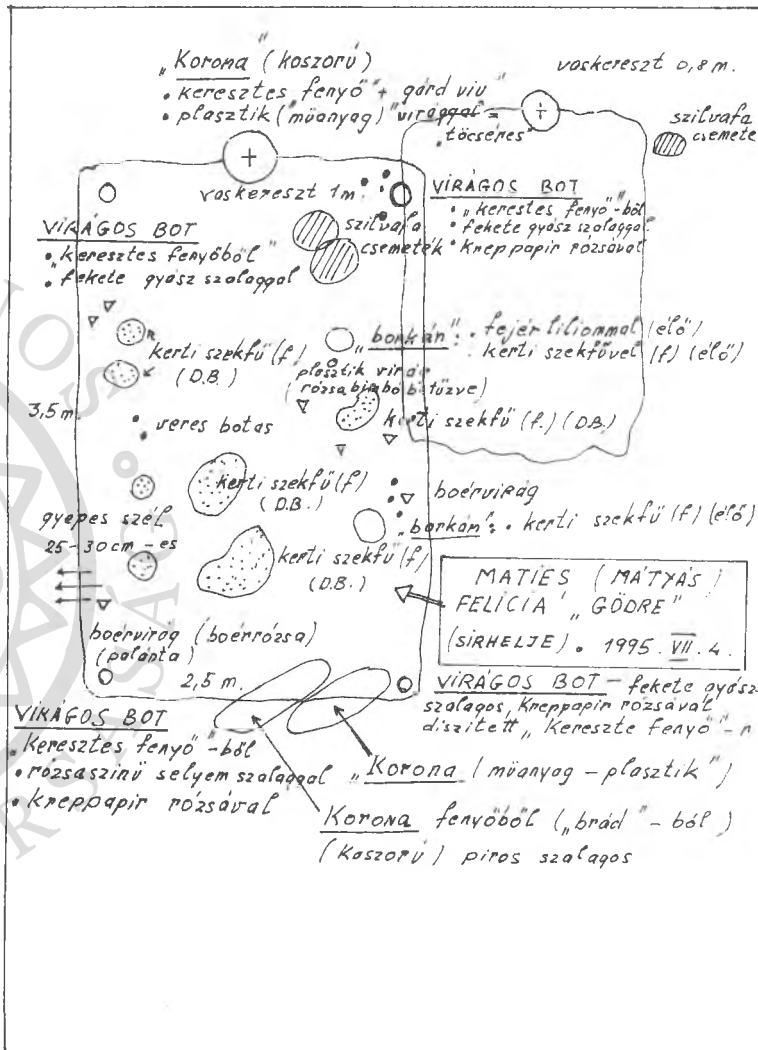 „Korona" (koszorú)
• keresztes fenyő + gárd viu"
• plasztik ("műanyag) "virággal =
„töcséres"
vaskereszt 0,8 m.
szilvafa
csemete
vaskereszt 1 m.
VIRÁGOS BOT
• „kerestes fenyő"-ből
• fekete gyász szalaggal
• kreppapir rózsával
VIRÁGOS BOT
• "keresztes fenyőből"
• "fekete gyász szalaggal
szilvafa
csemeték
kerti szekfű (f)
(D.B.)
„borkán": • fejér liliommal (élő)
kerti szekfűvel (f) (élő)
plasztik virág
(rózsabimbó b. tűzve)
3,5 m.
veres botas
kerti szekfű (f.) (D.B.)
kerti szekfű (f)
(D.B.)
boérvirág
gyepes szél
25-30 cm-es
„borkán": • kerti szekfű (f) (élő)
kerti szekfű (f)
(D.B.)
MATIES (MÁTYÁS)
FELÍCIA „GÖDRE"
(SÍRHELJE). 1995. VII. 4.
boérvirág (boérrózsa)
(palánta)
2,5 m.
VIRÁGOS BOT - fekete gyász
szalagos, kreppapir rózsával
díszített „Kereszte fenyő"-
VIRÁGOS BOT
„Keresztes fenyő"-ből
• rózsaszinű selyem szalaggal
• kreppapir rózsával
„Korona (műanyag - plasztik")
Korona fenyőből („brád"-ból)
(koszorú) piros szalagos